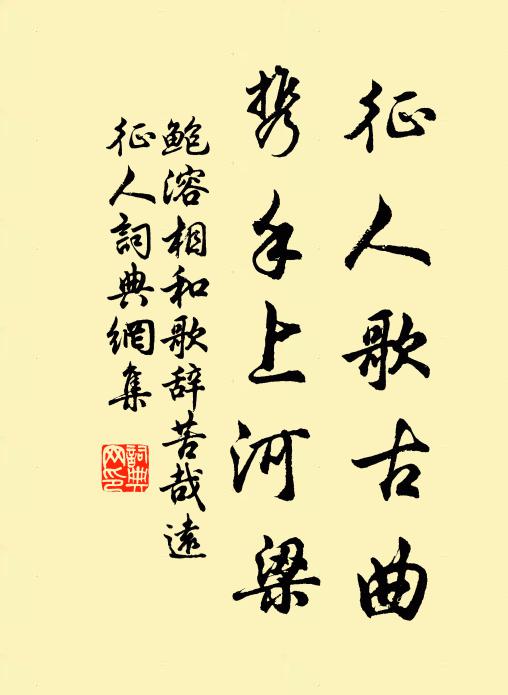 征人歌古曲
携手上河梁
鲍溶相和歌辞苦哉远
征人詞典網集
詞典
网印